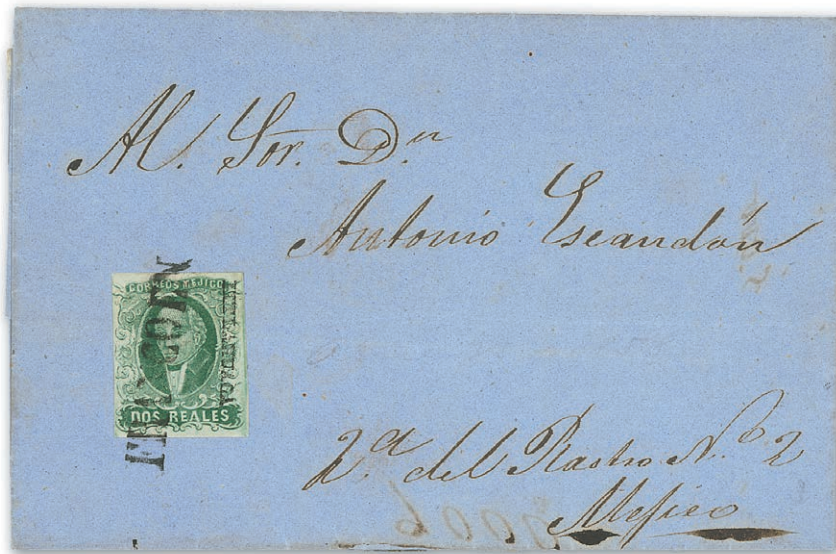 Al. Sor. Dn
Antonio Escandón
CORREOS MEJICO
DOS REALES
2a. del Rastro N.o 2
Mejico